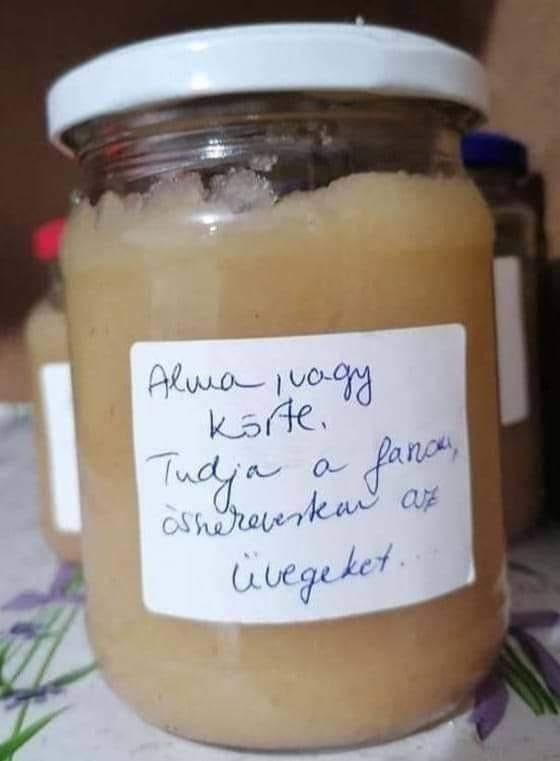 Alma, vagy
körte.
Tudja a fanom,
összekevertem az
üvegeket...